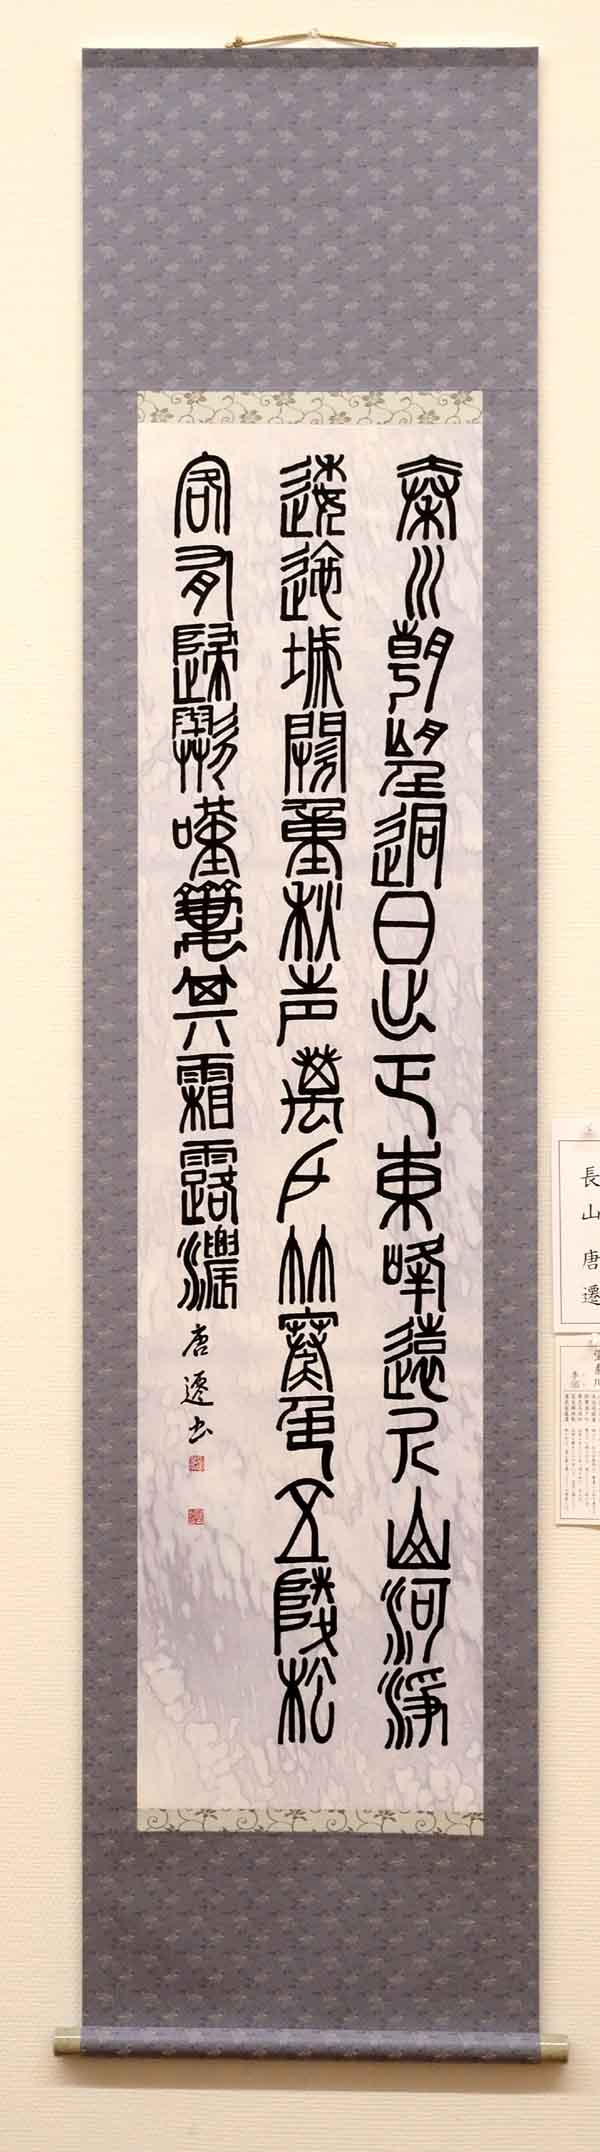 長山 唐遷
望秦川
李頎
秦川朝望迥日出正東峰遠近山河淨
逶迤城闕重秋声萬戶竹寒色五陵松
客有歸歟嘆淒其霜露濃 唐遷书